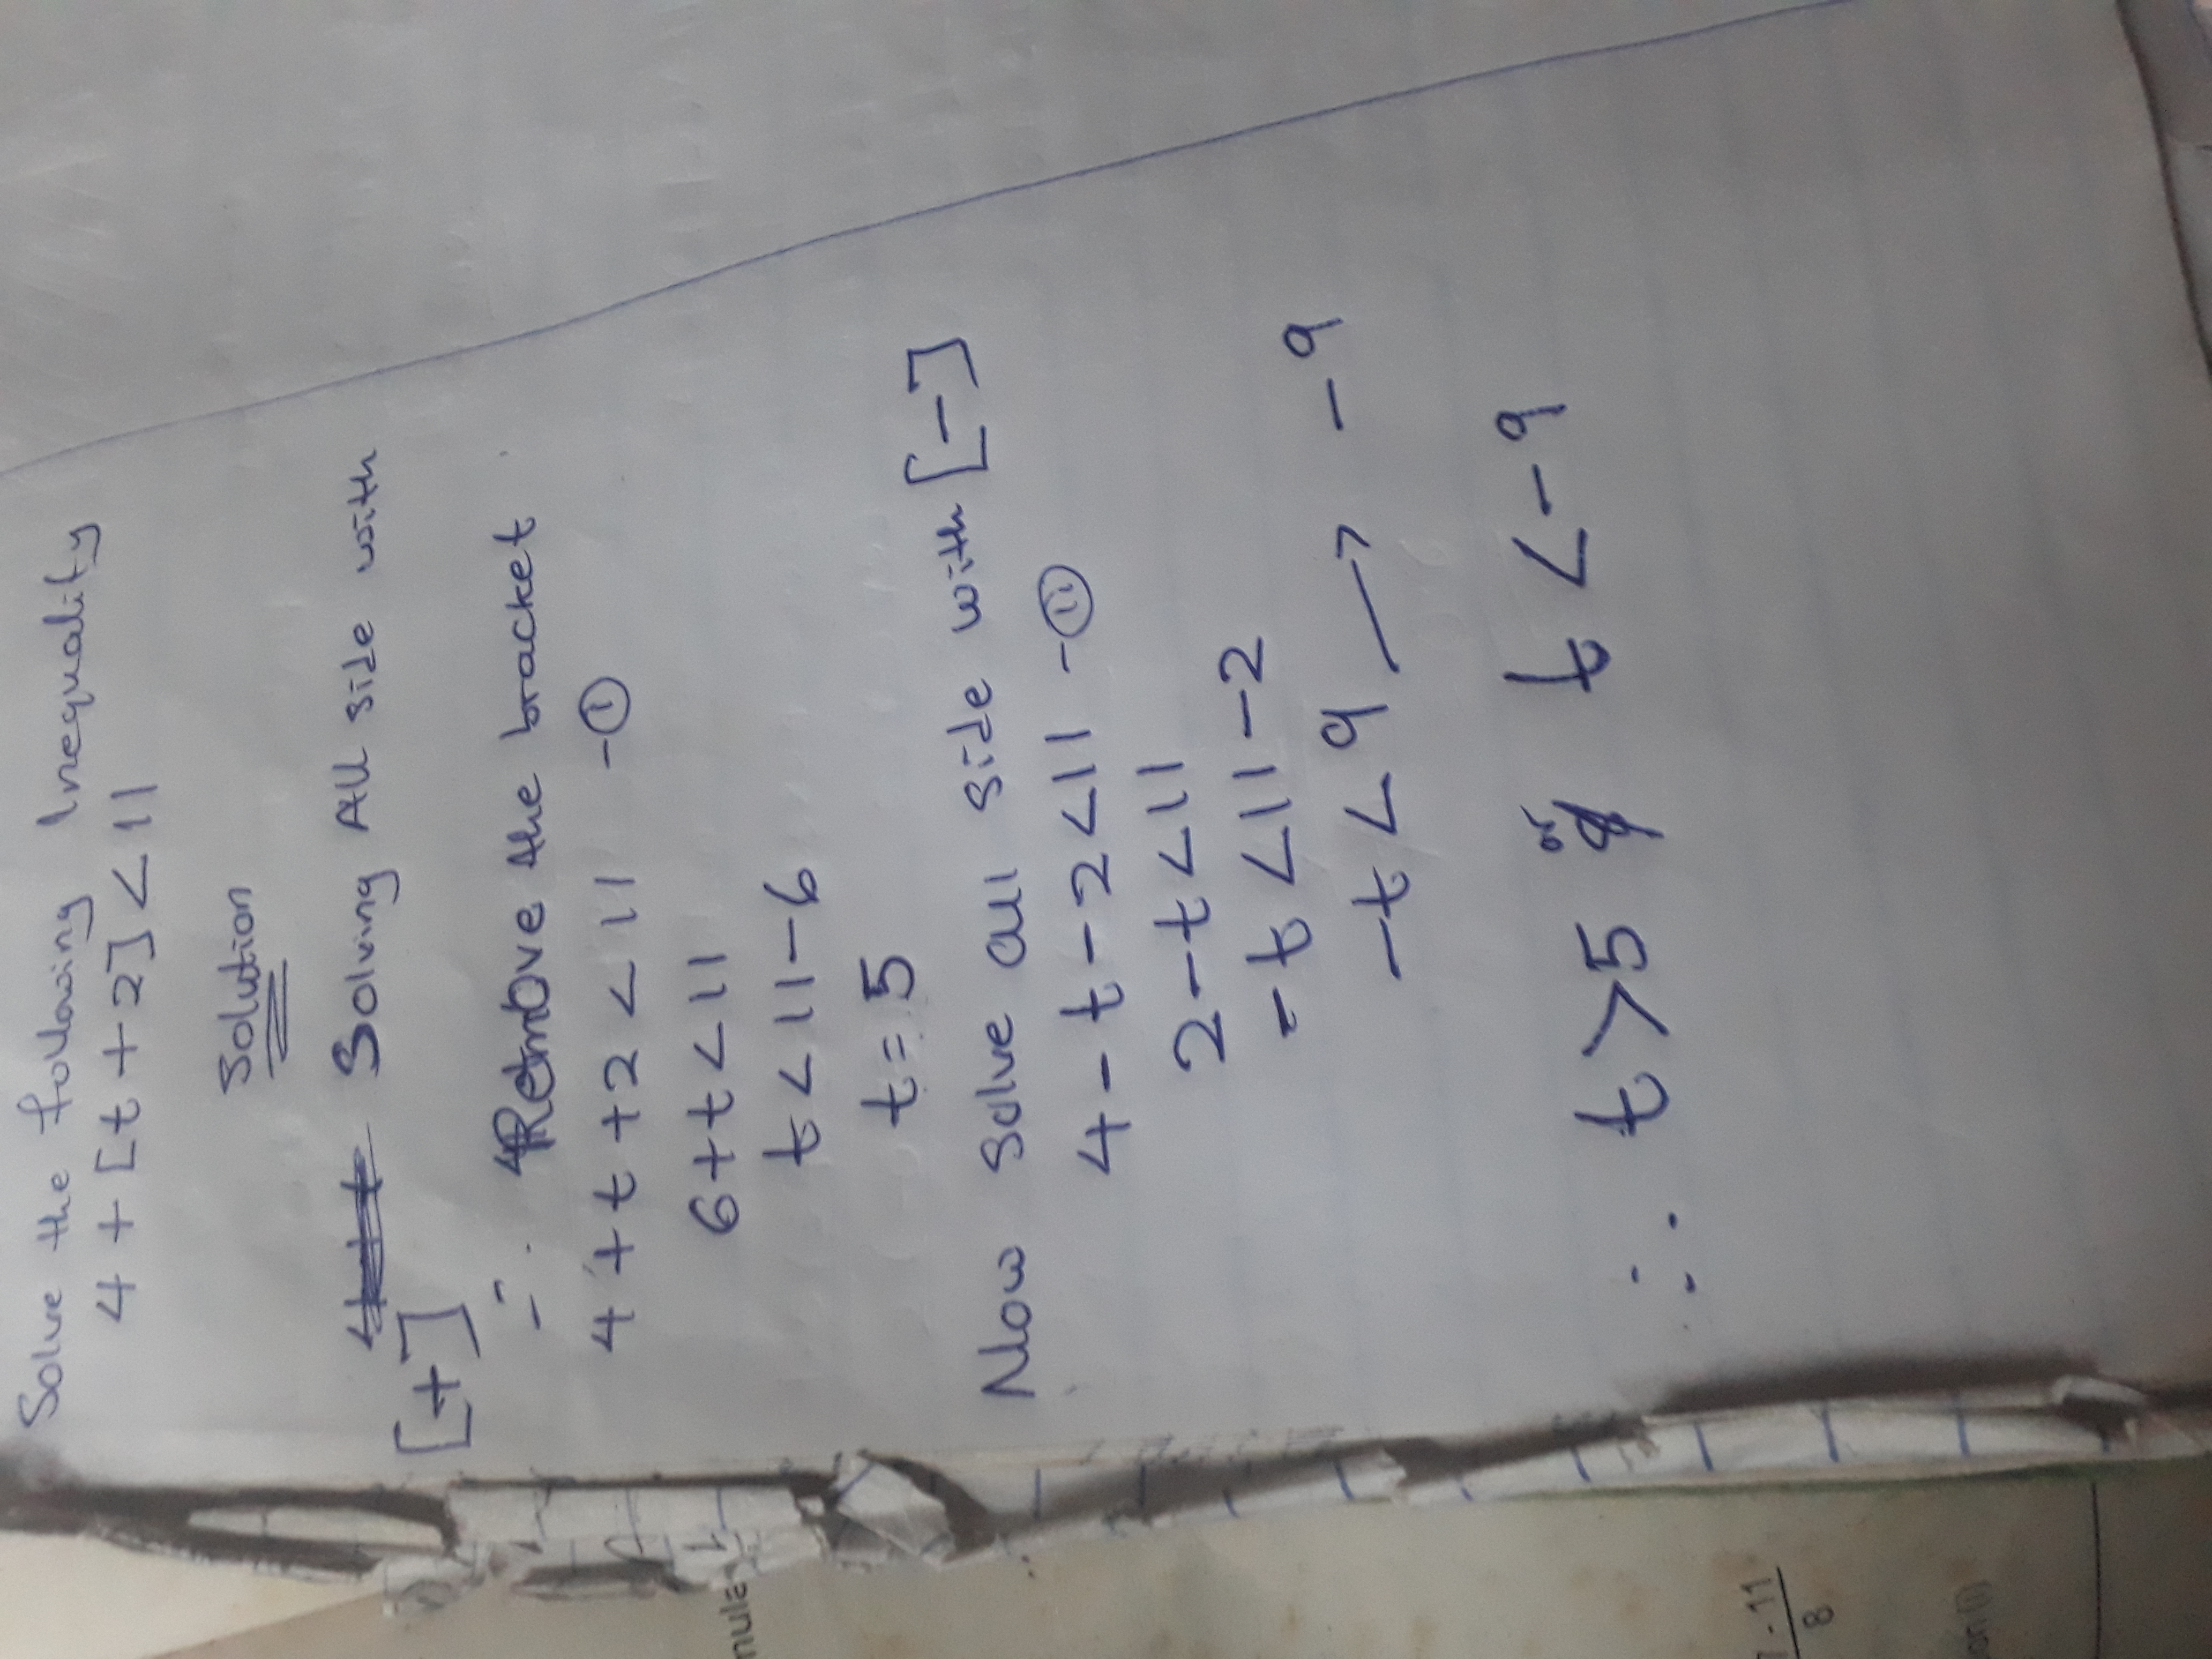 Solve the following Inequality
4 + [t + 2] < 11
Solution
Solving All side with
[+]
∴ Remove the bracket
4 + t + 2 < 11 - ①
6 + t < 11
t < 11 - 6
t = 5
Now Solve all side with [-]
4 - t - 2 < 11 - ⑪
2 - t < 11
- t < 11 - 2
- t < 9 → - 9
∴ t > 5 or t < - 9
mula
. 11
8
on(i)